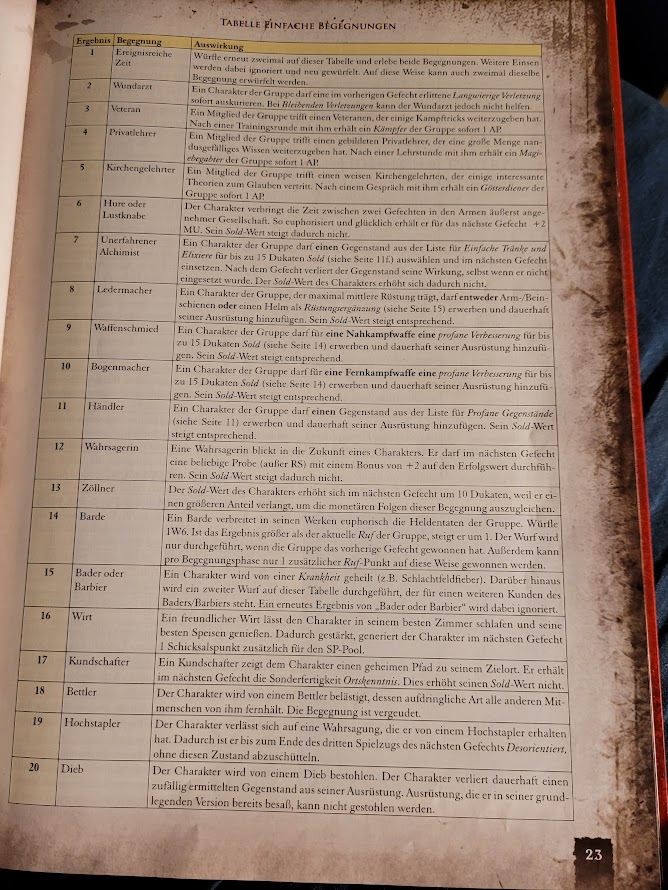 Tabelle Einfache Begegnungen
Ergebnis Begegnung Auswirkung
1 Ereignisreiche Zeit Würfle erneut zweimal auf dieser Tabelle und erlebe beide Begegnungen. Weitere Einsen
werden dabei ignoriert und neu gewürfelt. Auf diese Weise kann auch zweimal dieselbe
Begegnung erwürfelt werden.
2 Wundarzt Ein Charakter der Gruppe darf eine im vorherigen Gefecht erlittene Langwierige Verletzung
sofort auskurieren. Bei Bleibenden Verletzungen kann der Wundarzt jedoch nicht helfen.
3 Veteran Ein Mitglied der Gruppe trifft einen Veteranen, der einige Kampftricks weiterzugeben hat.
Nach einer Trainingsrunde mit ihm erhält ein Kämpfer der Gruppe sofort 1 AP.
4 Privatlehrer Ein Mitglied der Gruppe trifft einen gebildeten Privatlehrer, der eine große Menge nan-
dusgefälliges Wissen weiterzugeben hat. Nach einer Lehrstunde mit ihm erhält ein Magi-
ebegabter der Gruppe sofort 1 AP.
5 Kirchengelehrter Ein Mitglied der Gruppe trifft einen weisen Kirchengelehrten, der einige interessante
Theorien zum Glauben vertritt. Nach einem Gespräch mit ihm erhält ein Götterdiener der
Gruppe sofort 1 AP.
6 Hure oder Lustknabe Der Charakter verbringt die Zeit zwischen zwei Gefechten in den Armen äußerst ange-
nehmer Gesellschaft. So euphorisiert und glücklich erhält er für das nächste Gefecht +2
MU. Sein Sold-Wert steigt dadurch nicht.
7 Unerfahrener Alchimist Ein Charakter der Gruppe darf einen Gegenstand aus der Liste für Einfache Tränke und
Elixiere für bis zu 15 Dukaten Sold (siehe Seite 11f.) auswählen und im nächsten Gefecht
einsetzen. Nach dem Gefecht verliert der Gegenstand seine Wirkung, selbst wenn er nicht
eingesetzt wurde. Der Sold-Wert des Charakters erhöht sich dadurch nicht.
8 Ledermacher Ein Charakter der Gruppe, der maximal mittlere Rüstung trägt, darf entweder Arm-/Bein-
schienen oder einen Helm als Rüstungsergänzung (siehe Seite 15) erwerben und dauerhaft
seiner Ausrüstung hinzufügen. Sein Sold-Wert steigt entsprechend.
9 Waffenschmied Ein Charakter der Gruppe darf für eine Nahkampfwaffe eine profane Verbesserung für bis
zu 15 Dukaten Sold (siehe Seite 14) erwerben und dauerhaft seiner Ausrüstung hinzufü-
gen. Sein Sold-Wert steigt entsprechend.
10 Bogenmacher Ein Charakter der Gruppe darf für eine Fernkampfwaffe eine profane Verbesserung für bis
zu 15 Dukaten Sold (siehe Seite 14) erwerben und dauerhaft seiner Ausrüstung hinzufü-
gen. Sein Sold-Wert steigt entsprechend.
11 Händler Ein Charakter der Gruppe darf einen Gegenstand aus der Liste für Profane Gegenstände
(siehe Seite 11) erwerben und dauerhaft seiner Ausrüstung hinzufügen. Sein Sold-Wert
steigt entsprechend.
12 Wahrsagerin Eine Wahrsagerin blickt in die Zukunft eines Charakters. Er darf im nächsten Gefecht
eine beliebige Probe (außer RS) mit einem Bonus von +2 auf den Erfolgswert durchfüh-
ren. Sein Sold-Wert steigt dadurch nicht.
13 Zöllner Der Sold-Wert des Charakters erhöht sich im nächsten Gefecht um 10 Dukaten, weil er ei-
nen größeren Anteil verlangt, um die monetären Folgen dieser Begegnung auszugleichen.
14 Barde Ein Barde verbreitet in seinen Werken euphorisch die Heldentaten der Gruppe. Würfle
1W6. Ist das Ergebnis größer als der aktuelle Ruf der Gruppe, steigt er um 1. Der Wurf wird
nur durchgeführt, wenn die Gruppe das vorherige Gefecht gewonnen hat. Außerdem kann
pro Begegnungsphase nur 1 zusätzlicher Ruf-Punkt auf diese Weise gewonnen werden.
15 Bader oder Barbier Ein Charakter wird von einer Krankheit geheilt (z.B. Schlachtfeldfieber). Darüber hinaus
wird ein zweiter Wurf auf dieser Tabelle durchgeführt, der für einen weiteren Kunden des
Baders/Barbiers steht. Ein erneutes Ergebnis von „Bader oder Barbier“ wird dabei ignoriert.
16 Wirt Ein freundlicher Wirt lässt den Charakter in seinem besten Zimmer schlafen und seine
besten Speisen genießen. Dadurch gestärkt, generiert der Charakter im nächsten Gefecht
1 Schicksalspunkt zusätzlich für den SP-Pool.
17 Kundschafter Ein Kundschafter zeigt dem Charakter einen geheimen Pfad zu seinem Zielort. Er erhält
im nächsten Gefecht die Sonderfertigkeit Ortskenntnis. Dies erhöht seinen Sold-Wert nicht.
18 Bettler Der Charakter wird von einem Bettler belästigt, dessen aufdringliche Art alle anderen Mit-
menschen von ihm fernhält. Die Begegnung ist vergeudet.
19 Hochstapler Der Charakter verlässt sich auf eine Wahrsagung, die er von einem Hochstapler erhalten
hat. Dadurch ist er bis zum Ende des dritten Spielzugs des nächsten Gefechts Desorientiert,
ohne diesen Zustand abzuschütteln.
20 Dieb Der Charakter wird von einem Dieb bestohlen. Der Charakter verliert dauerhaft einen
zufällig ermittelten Gegenstand aus seiner Ausrüstung. Ausrüstung, die er in seiner grund-
legenden Version bereits besaß, kann nicht gestohlen werden.
23